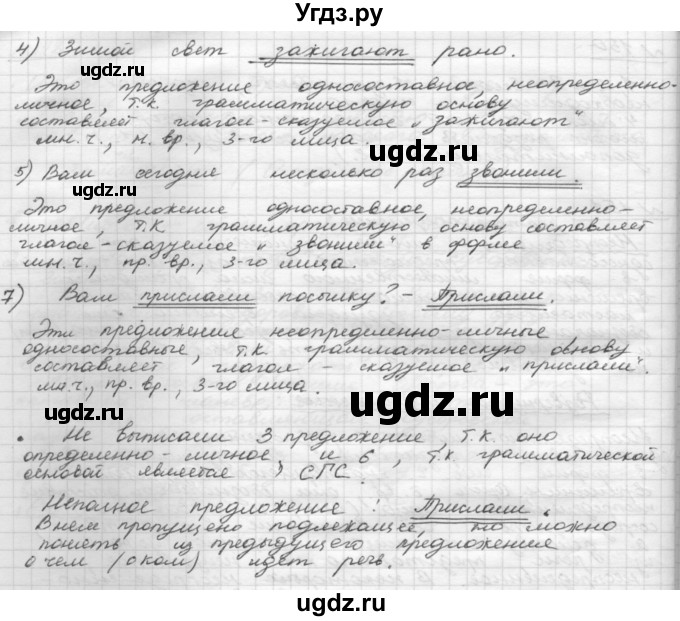 Угдз.ру
4) Зимой свет зажигают рано.
Это предложение односоставное, неопределенно-
личное, т.к. грамматическую основу
составляет глагол-сказуемое „зажигают“
мн.ч., н.вр., 3-го лица.
5) Вам сегодня несколько раз звонили.
Это предложение односоставное, неопределенно-
личное, т.к грамматическую основу составляет
глагол-сказуемое „звонили“ в форме
мн.ч., пр. вр., 3-го лица.
7) Вам прислали посылку? – Прислали.
Эти предложения неопределенно-личные
односоставные, т.к. грамматическую основу
составляет глагол - сказуемое „прислали“.
мн.ч., пр. вр., 3-го лица.
• Не выписали 3 предложение, т.к. оно
определенно-личное, и 6, т.к. грамматической
основой является СГС.
Неполное предложение: Прислали.
В нем пропущено подлежащее, но можно
понять из предыдущего предложения
о чем (о ком) идет речь.
ugdz.ru
ugdz.ru
ugdz.ru
ugdz.ru
ugdz.ru
ugdz.ru
ugdz.ru
ugdz.ru
ugdz.ru
ugdz.ru
ugdz.ru